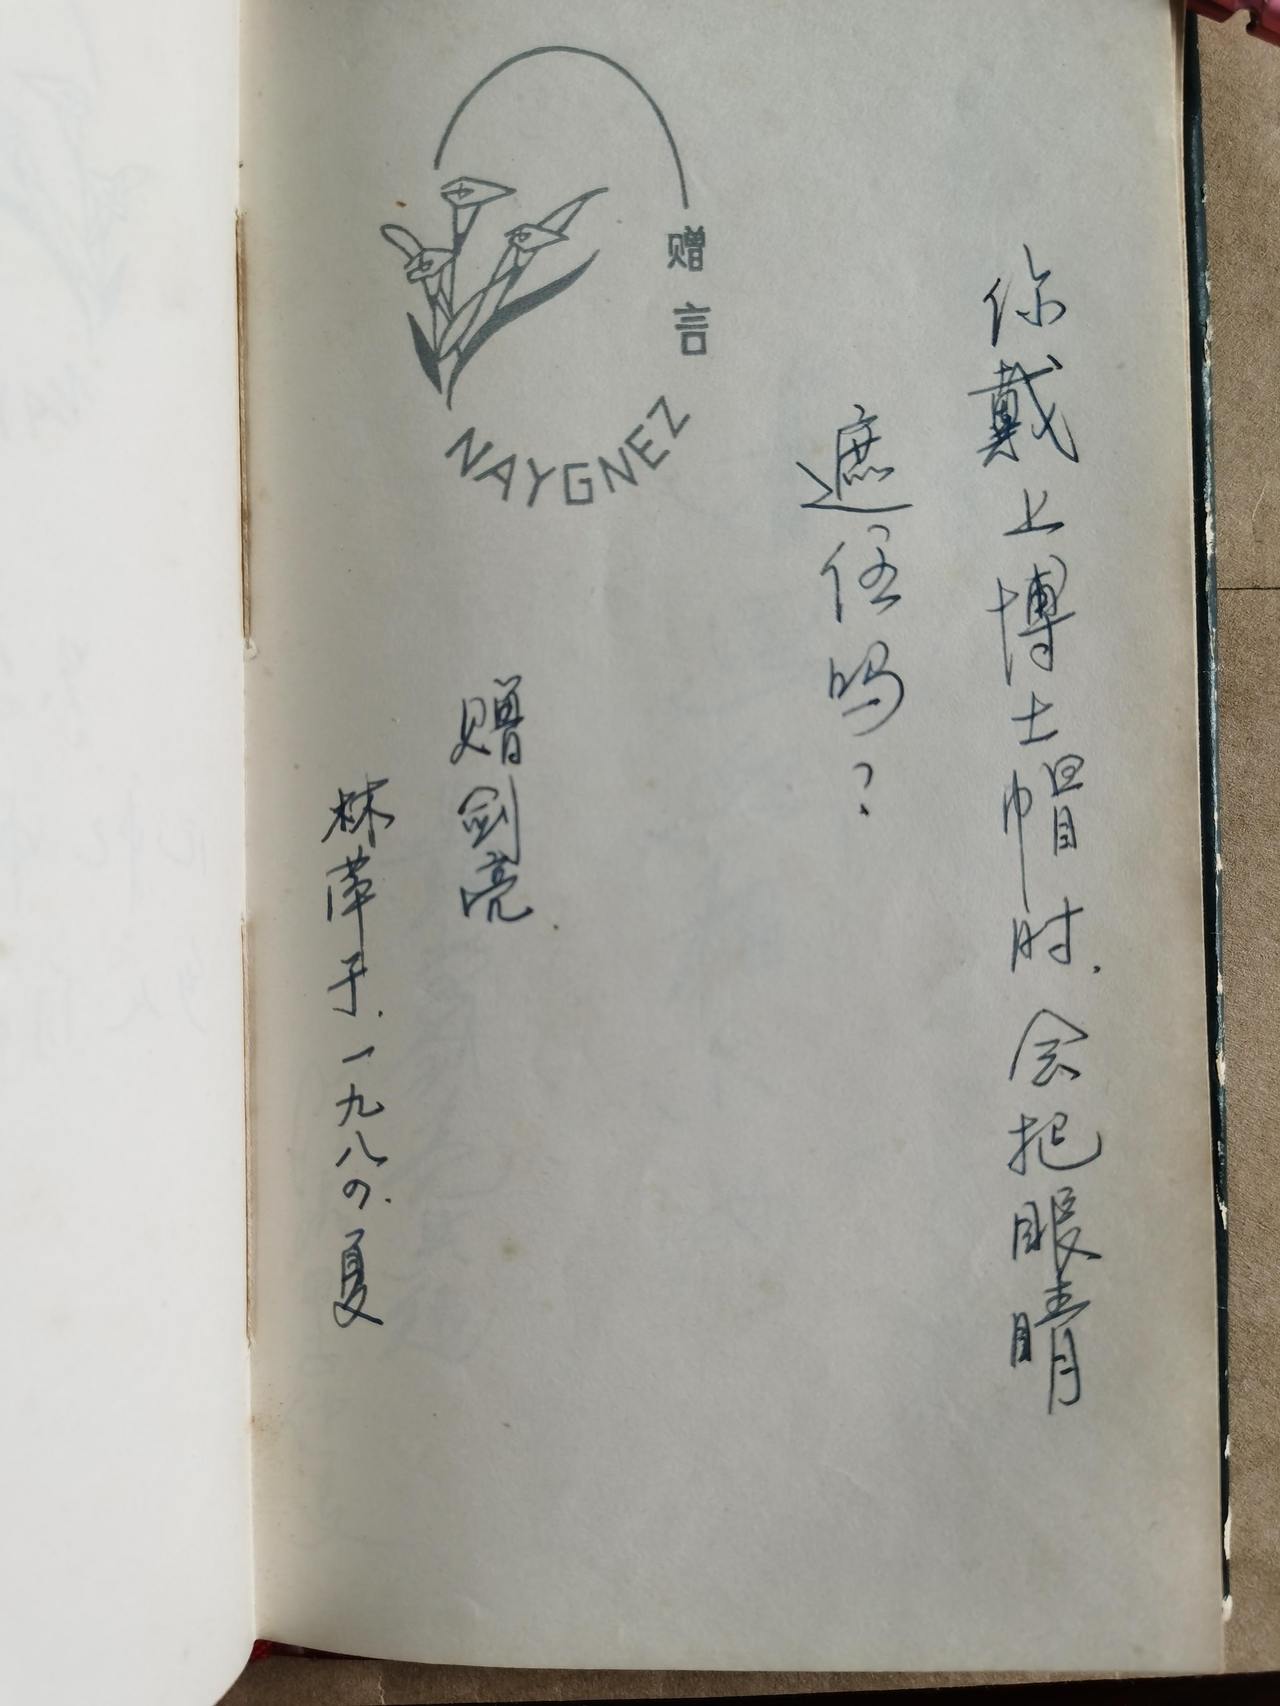 你戴上博士帽时.会把眼睛
遮住吗？
赠言
NAYGNEZ
赠剑亮
林萍于.一九八の.夏